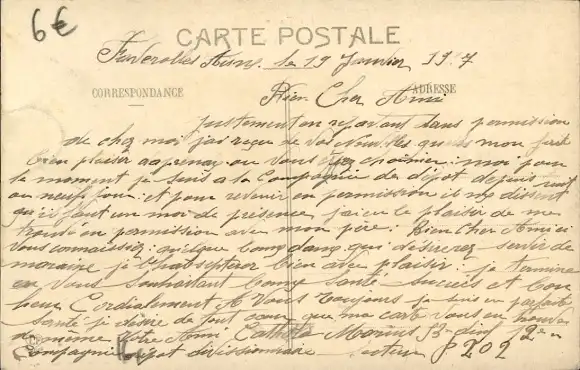 6€
CARTE POSTALE
le 19 Janvier 1917
CORRESPONDANCE
ADRESSE
Bien Cher Ami
Justement en repartant dans permission
de chez moi j'ai reçu de vos qui mon fait
bien plaisir ou vous moi pour
le moment je suis a la Compagnie de dépot depuis huit
ou neuf jour et pour revenir en permission il me disent
qu'il faut un moi de présence j'ai eu le plaisir de me
trouve en permission avec mon père: Bien Cher Ami ci
vous connaissiez: quelque qui désirerez servir de
maraine je bien avec plaisir: je termine
en Vous Souhaittant bonne Santé Succès et Bon
heur Cordialement A Vous Toujours je suis en parfaite
Santé je désire de tout cœur que ma carte vous en trouve
de même Votre Ami Marius
Compagnie dépot divisionnaire Secteur P 202